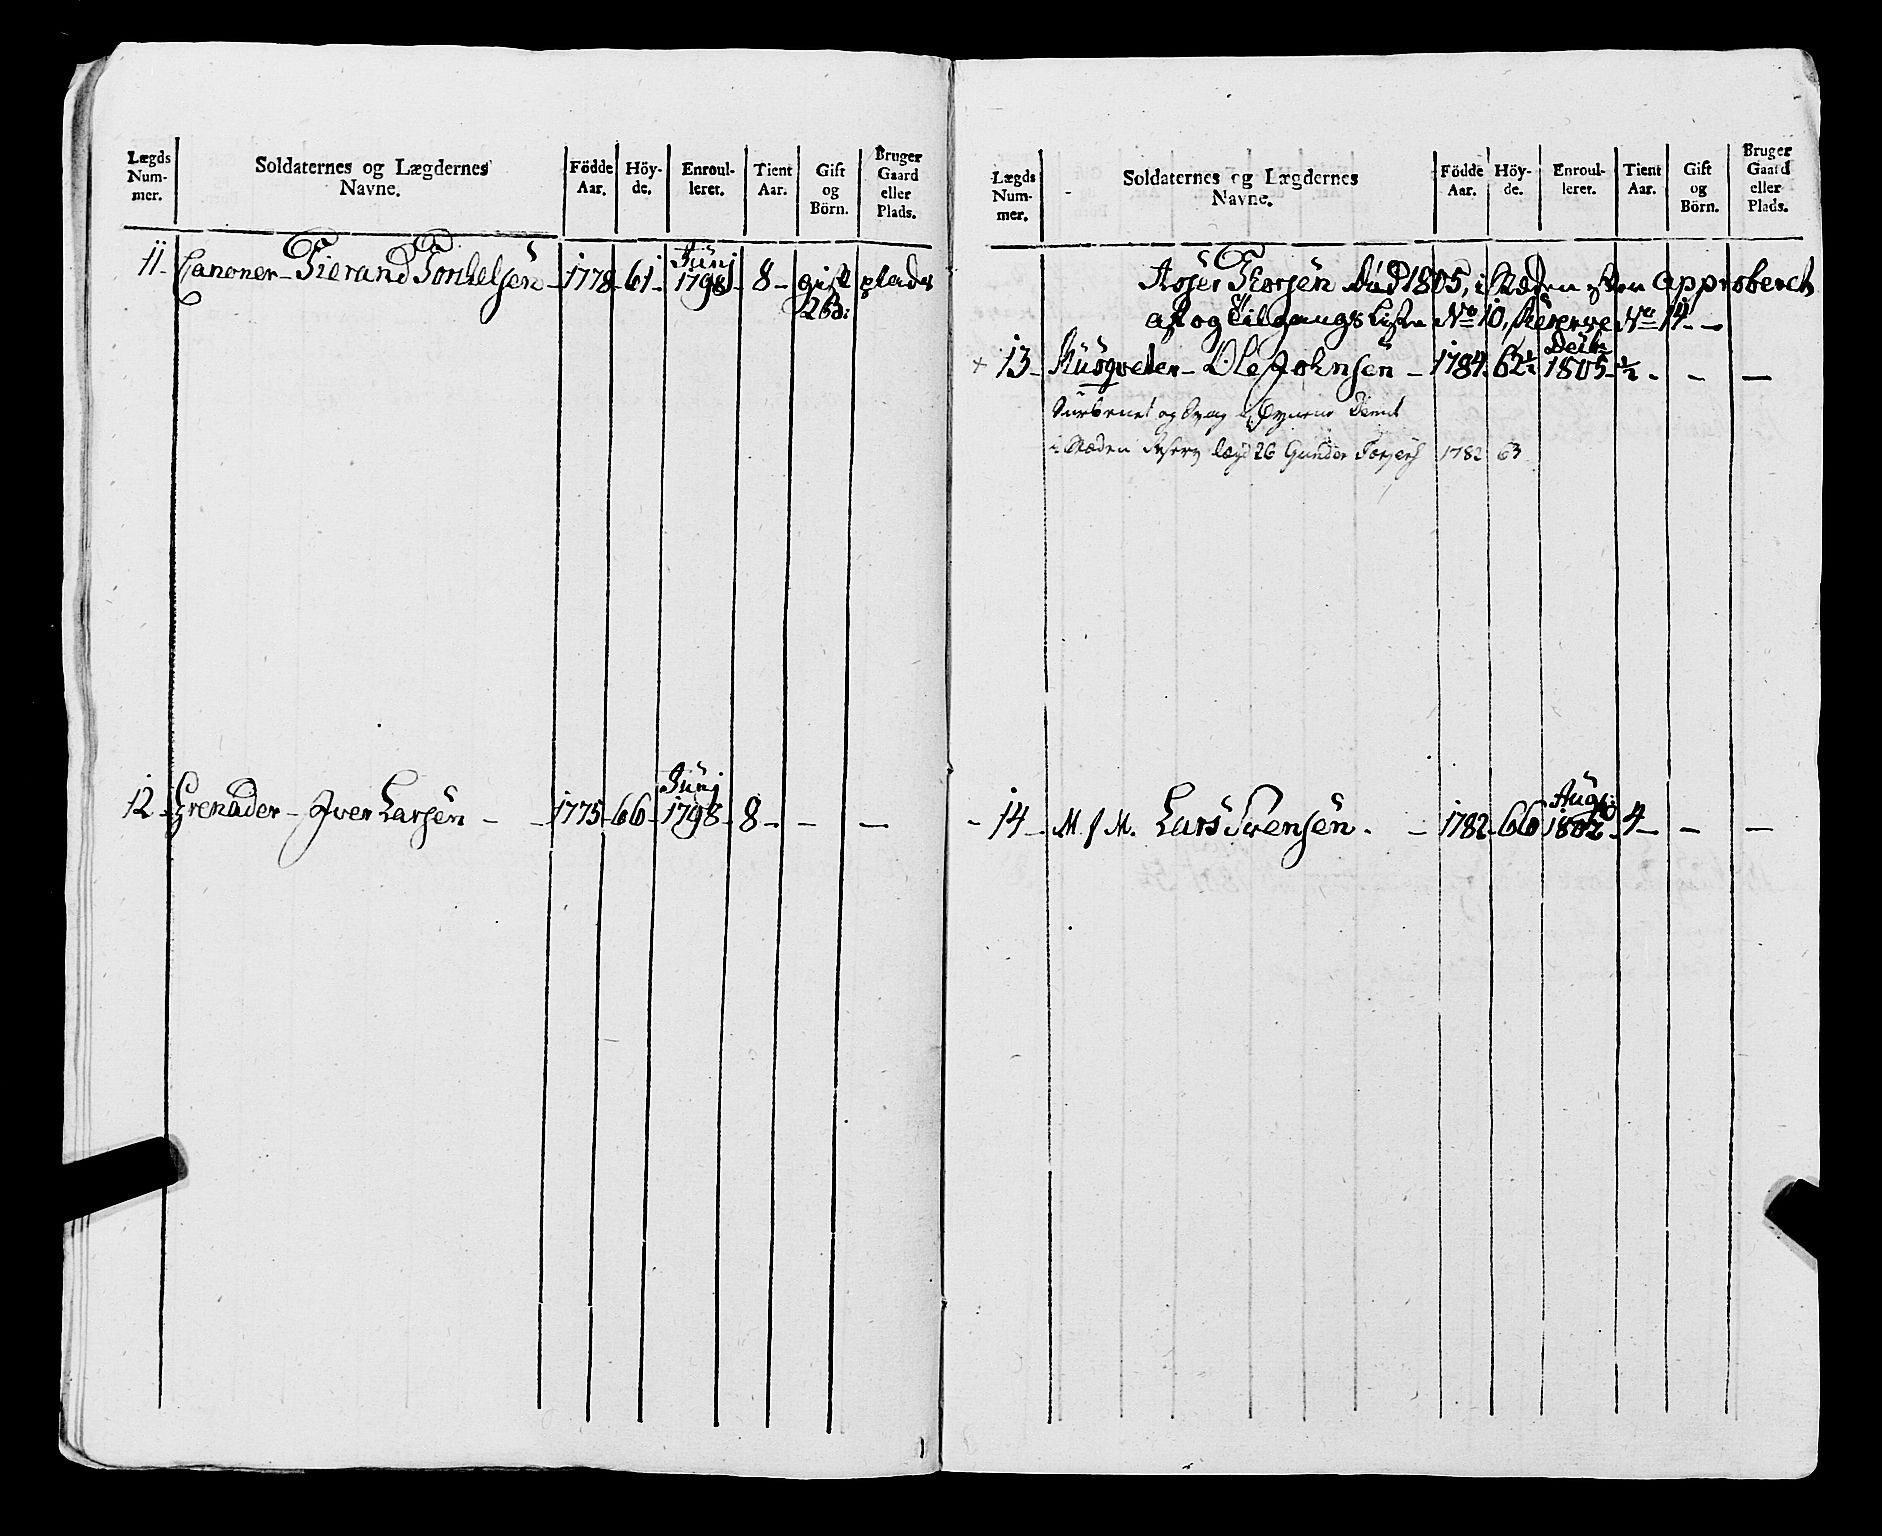 Lægds Num- mer. | Soldaternes og Lægdernes Navne. | Födde Aar. | Höy- de. | Enroul- leret. | Tient Aar. | Gift og Börn. | Bruger Gaard eller Plads.
11 - Canoner - Tierand Torkelsen - 1778 - 61 - Junj 1798 - 8 - gift 2 B: plads
12 - Grenader - Iver Larsen - - 1775 - 66 - Junj 1798 - 8 - - -
Lægds Num- mer. | Soldaternes og Lægdernes Navne. | Födde Aar. | Höy- de. | Enroul- leret. | Tient Aar. | Gift og Börn. | Bruger Gaard eller Plads.
død 1805, i Stæden approberet
af og tilgangs Liste No 10, Reserve No 14 -
+ 13 - Musqveter - Ole Johnsen - 1784 62½ Decbr 1805 - ½ - - -
og Svag i Øynene Dømt
i Stæden Reserv lægd 26 Gunder 1782 63
- 14 - M / M. Lars Svensen. - 1782 - 66 Aug: 1802 - 4 - - -